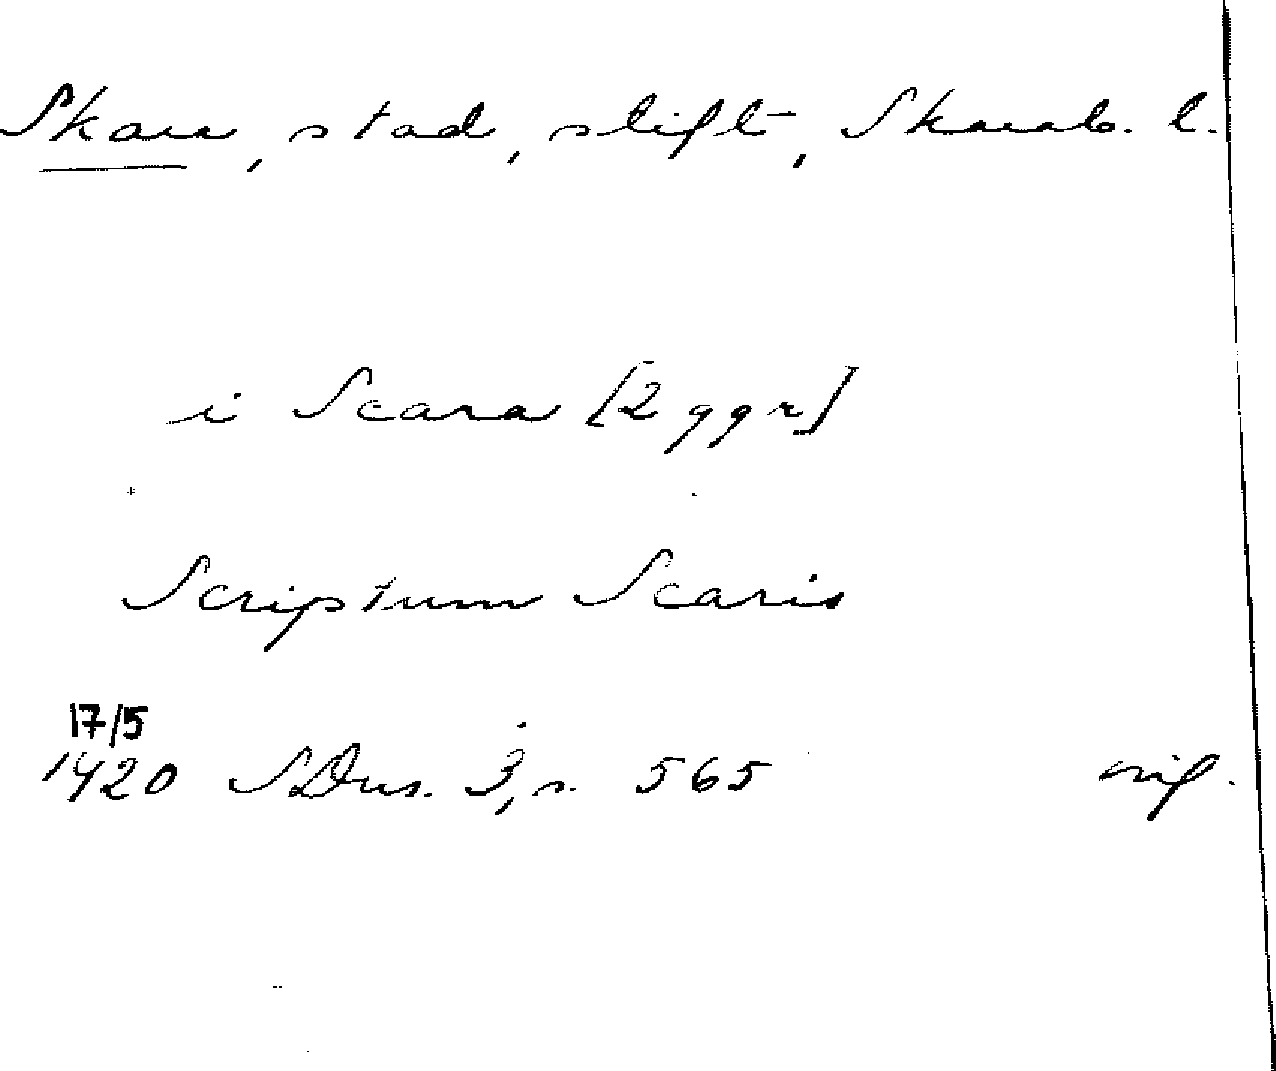 Skara, stad, stift, Skarab. l.
i Scara [2 ggr]
Scriptum Scaris
17/5
1420 SDns. 3, s. 565 orig.